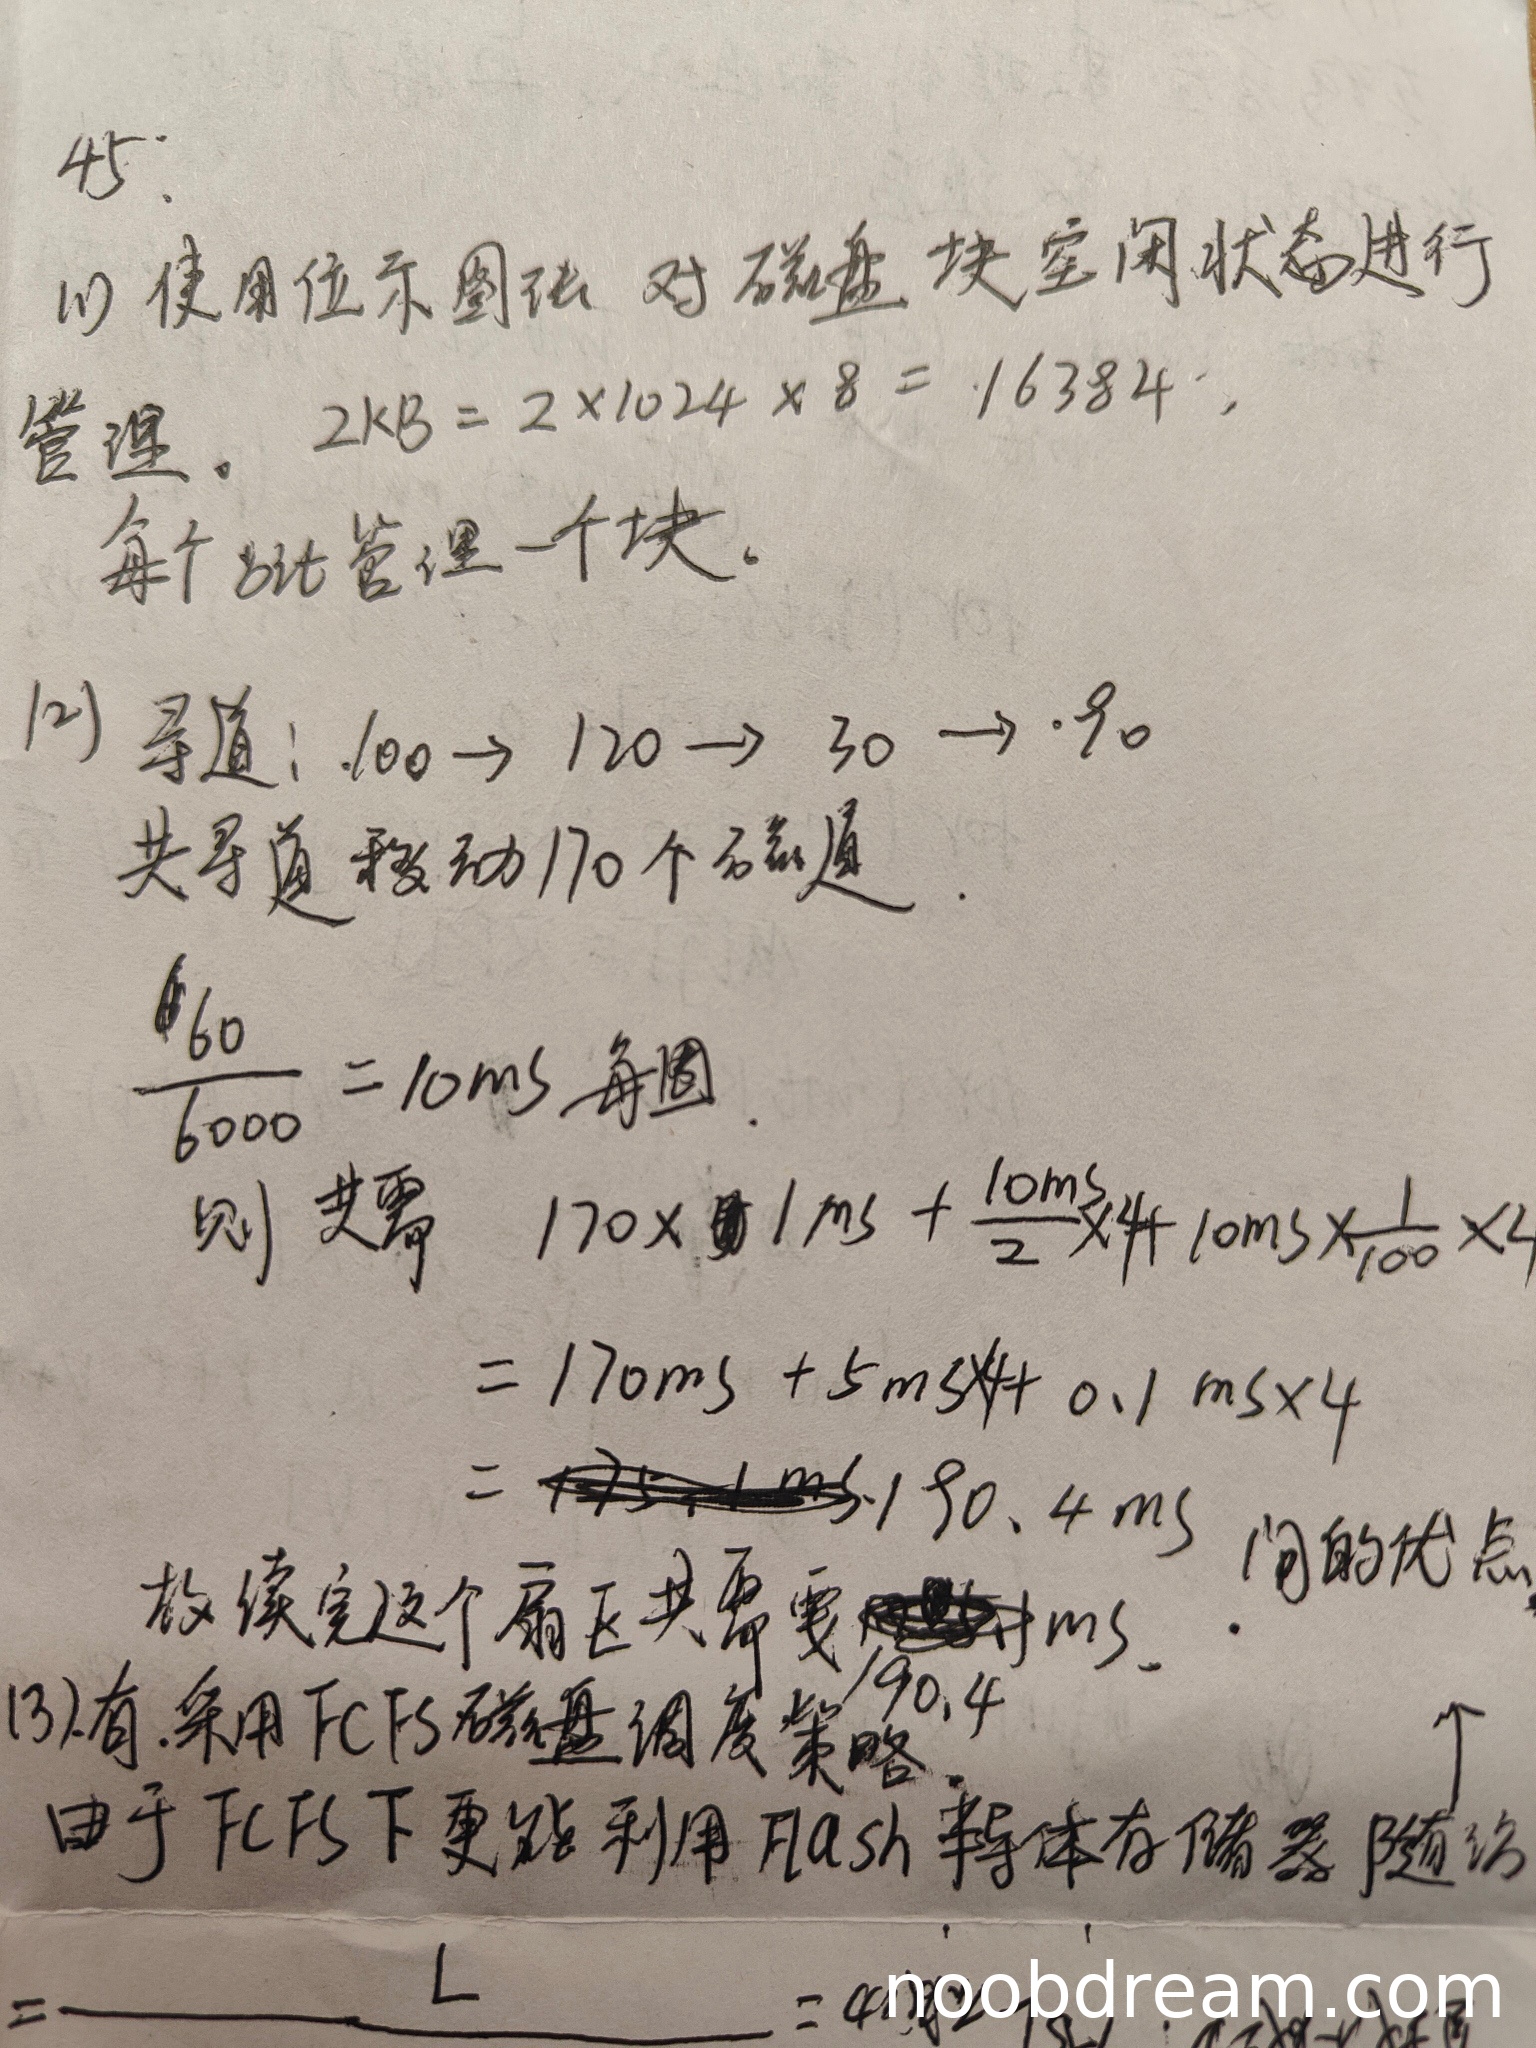 45.
(1) 使用位示图法 对磁盘块空闲状态进行
管理。 2KB = 2×1024×8 = 16384,
每个bit管理一个块。
(2) 寻道: 100→ 120→ 30 →90
共寻道移动170个磁道.
60/6000 = 10ms 每圈.
则共需 170×1ms + 10ms/2 ×4+ 10ms×1/100 ×4
= 170ms +5ms×4+ 0.1ms×4
= 190.4ms
故续完这个扇区共需要 190.4 ms.
(3).有.采用FCFS磁盘调度策略.
由于FCFS下更能利用Flash半导体存储器随访
间的优点.
= L =
noobdream.com